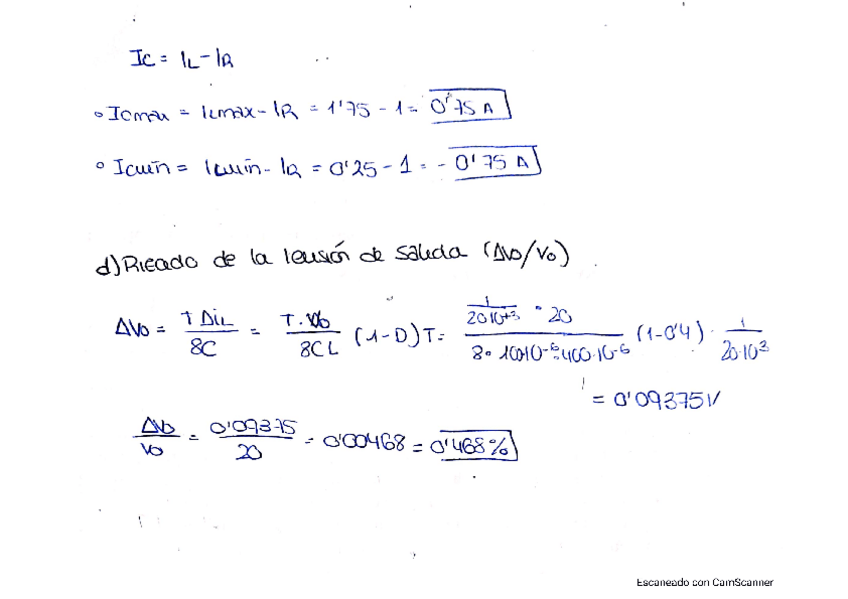 Ic = IL - IR
° Icmax = ILmax - IR = 1'75 - 1 = 0'75 A
° Icmín = ILmín - IR = 0'25 - 1 = - 0'75 A
d) Rizado de la tensión de salida (ΔVo/Vo)
ΔVo = T ΔiL / 8C = T·Vo / 8CL (1-D) T = (1 / 20·10^+3 · 20) / (8 · 100·10^-6 · 400·10^-6) (1-0'4) · 1 / 20·10^3
= 0'09375 V
ΔVo / Vo = 0'09375 / 20 = 0'00468 = 0'468 %
Escaneado con CamScanner